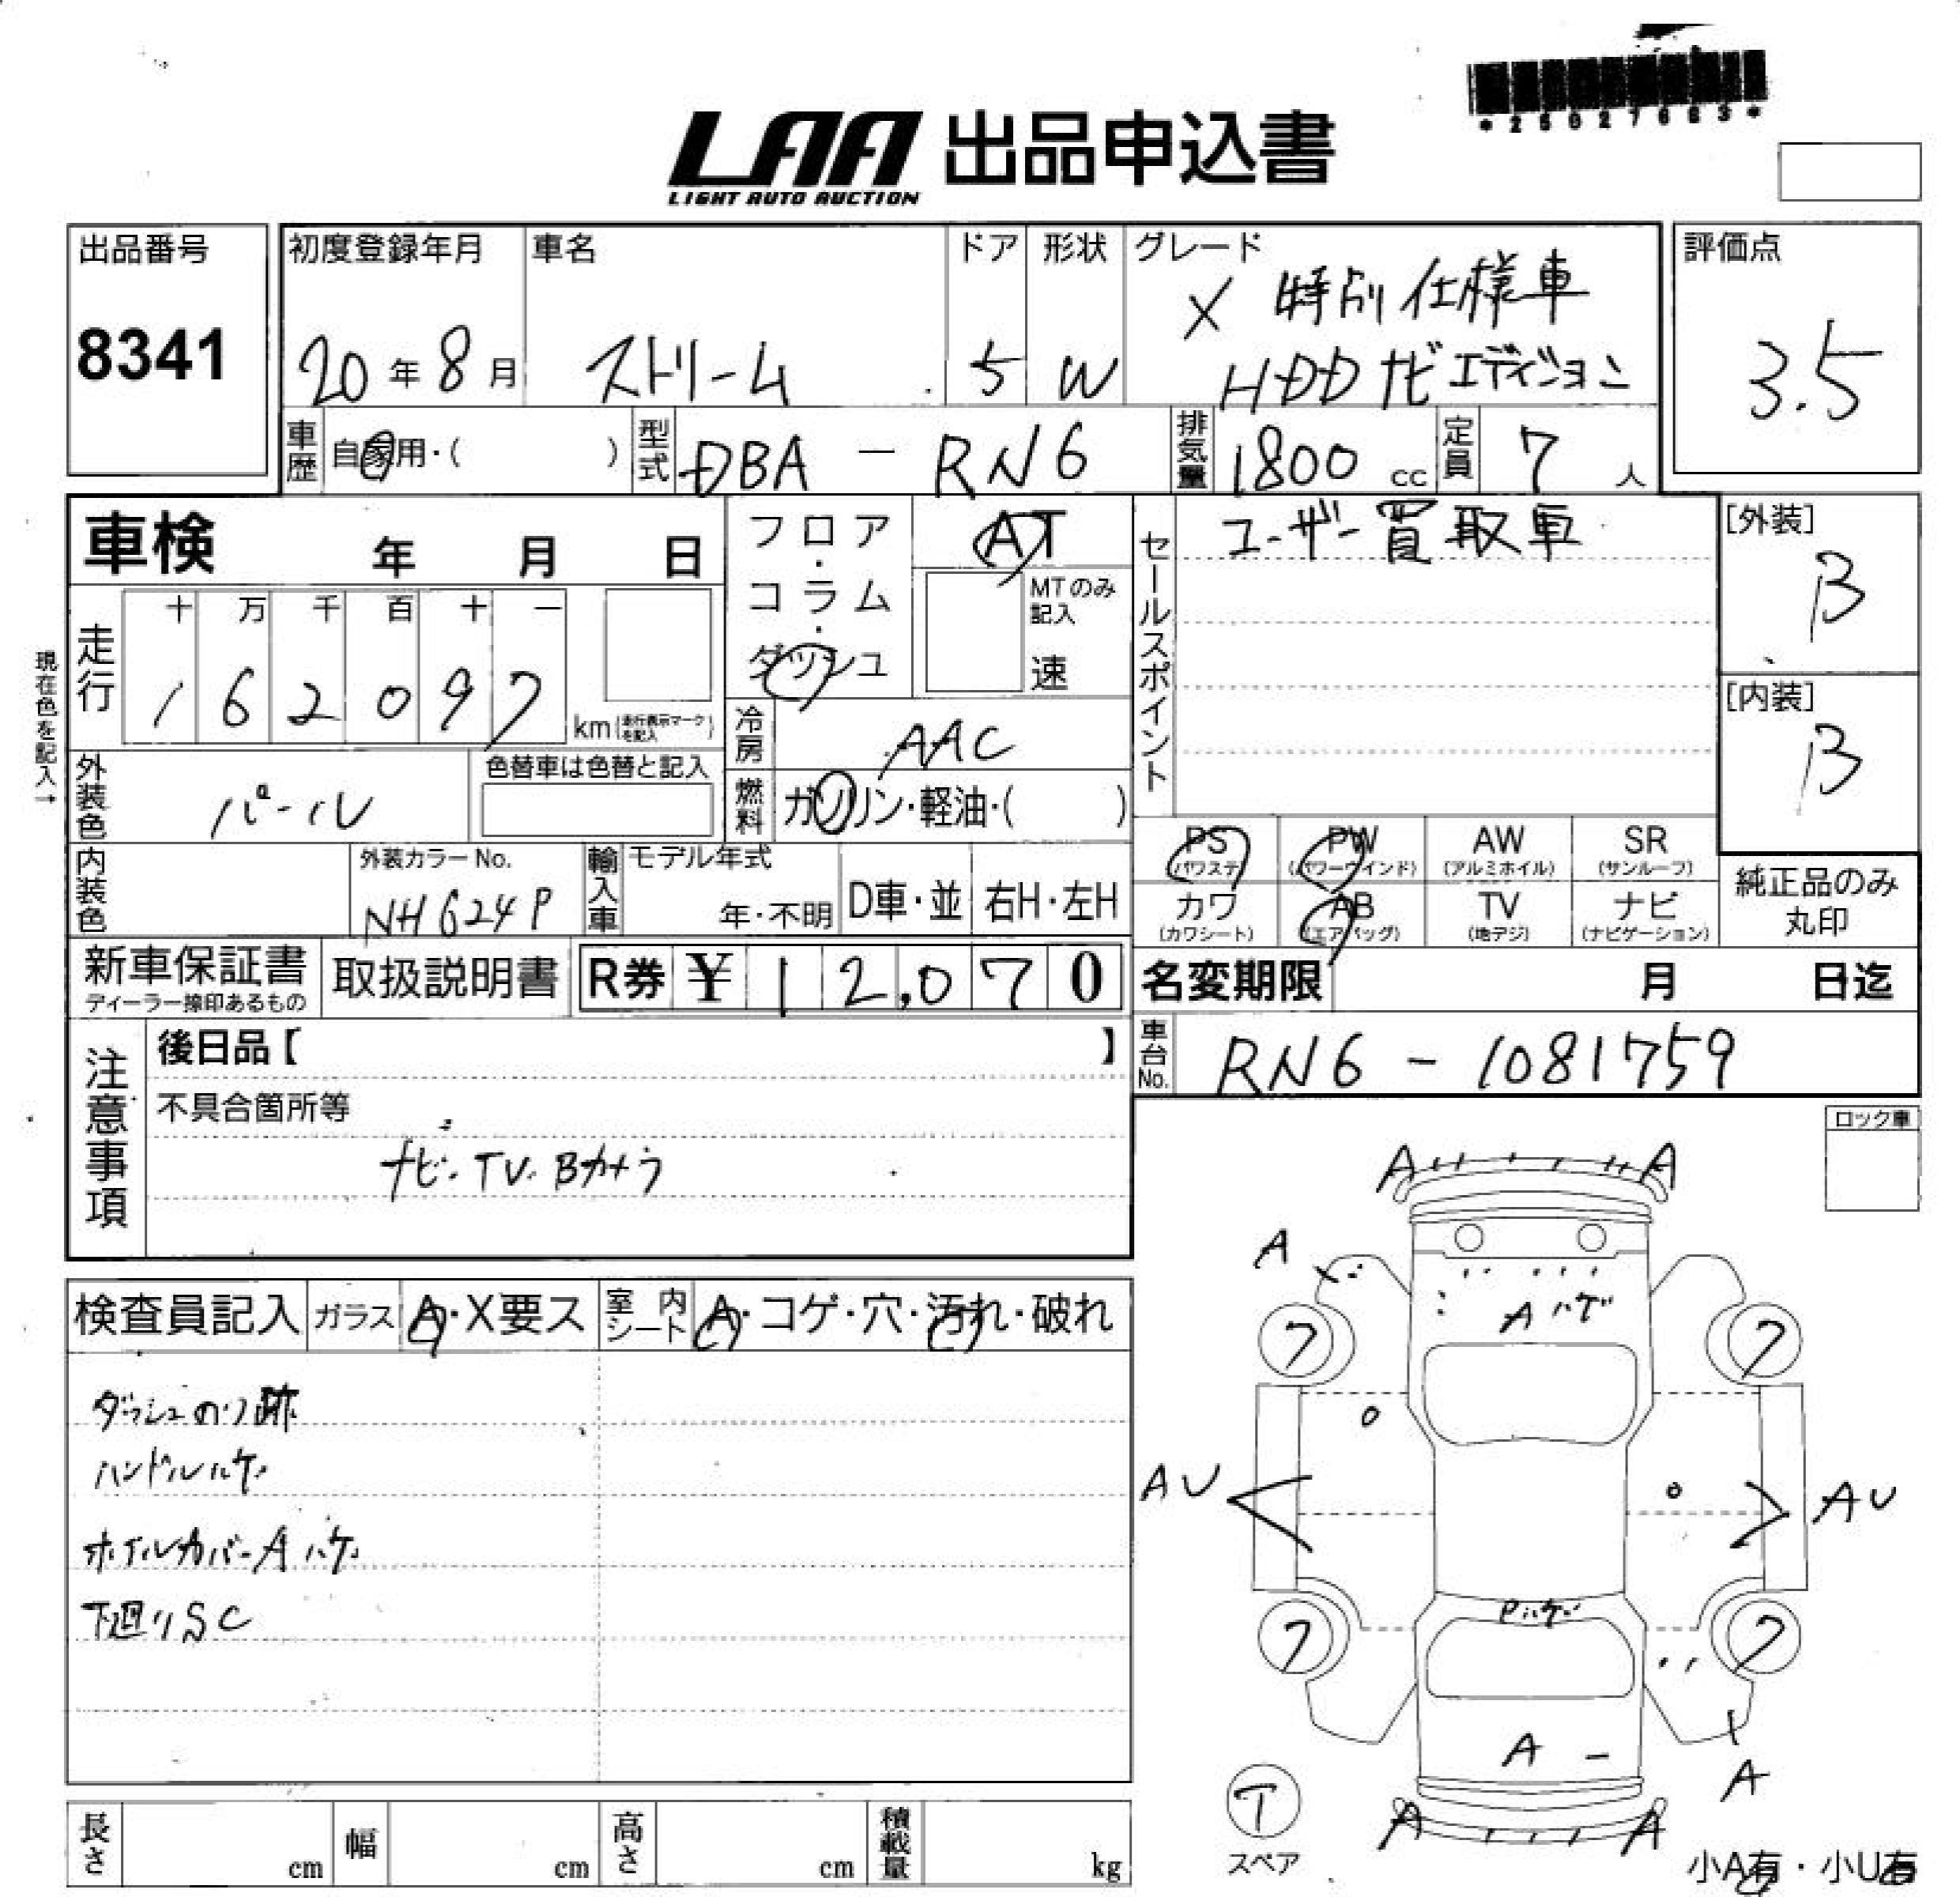 *25027663*
LAA 出品申込書
LIGHT AUTO AUCTION
出品番号
8341
初度登録年月
20年8月
車名
ストリーム
ドア
5
形状
W
グレード
X 特別仕様車
HDDナビエディション
評価点
3.5
車歴
自家用・( )
型式
DBA - RN6
排気量
1800 cc
定員
7人
車検 年 月 日
フロア・コラム・ダッシュ
AT
MTのみ記入
速
セールスポイント
ユーザー買取車
[外装]
B
[内装]
B
現在色を記入→
走行
十 万 千 百 十 一
1 6 2 0 9 7
km(走行表示マークを記入)
冷房
AAC
燃料
ガソリン・軽油・( )
外装色
パール
色替車は色替と記入
内装色
外装カラーNo.
NH624P
輸入車
モデル年式
年・不明
D車・並
右H・左H
PS (パワステ)
PW (パワーウインド)
AW (アルミホイル)
SR (サンルーフ)
カワ (カワシート)
AB (エアバッグ)
TV (地デジ)
ナビ (ナビゲーション)
純正品のみ
丸印
新車保証書
ディーラー捺印あるもの
取扱説明書
R券 ¥12,070
名変期限 月 日迄
車台No.
RN6 - 1081759
注意事項
後日品【 】
不具合箇所等
ナビ・TV・Bカメラ
ロック車
検査員記入
ガラス A・X要ス
室内シート A・コゲ・穴・汚れ・破れ
ダッシュのり跡
ハンドルハゲ
ホイルカバーAハゲ
下廻りSC
A A
A
Aハゲ
7 7
AU AU
Pハゲ
7 7
A
A
A A
T
スペア
小A有・小U有
長さ cm
幅 cm
高さ cm
積載量 kg